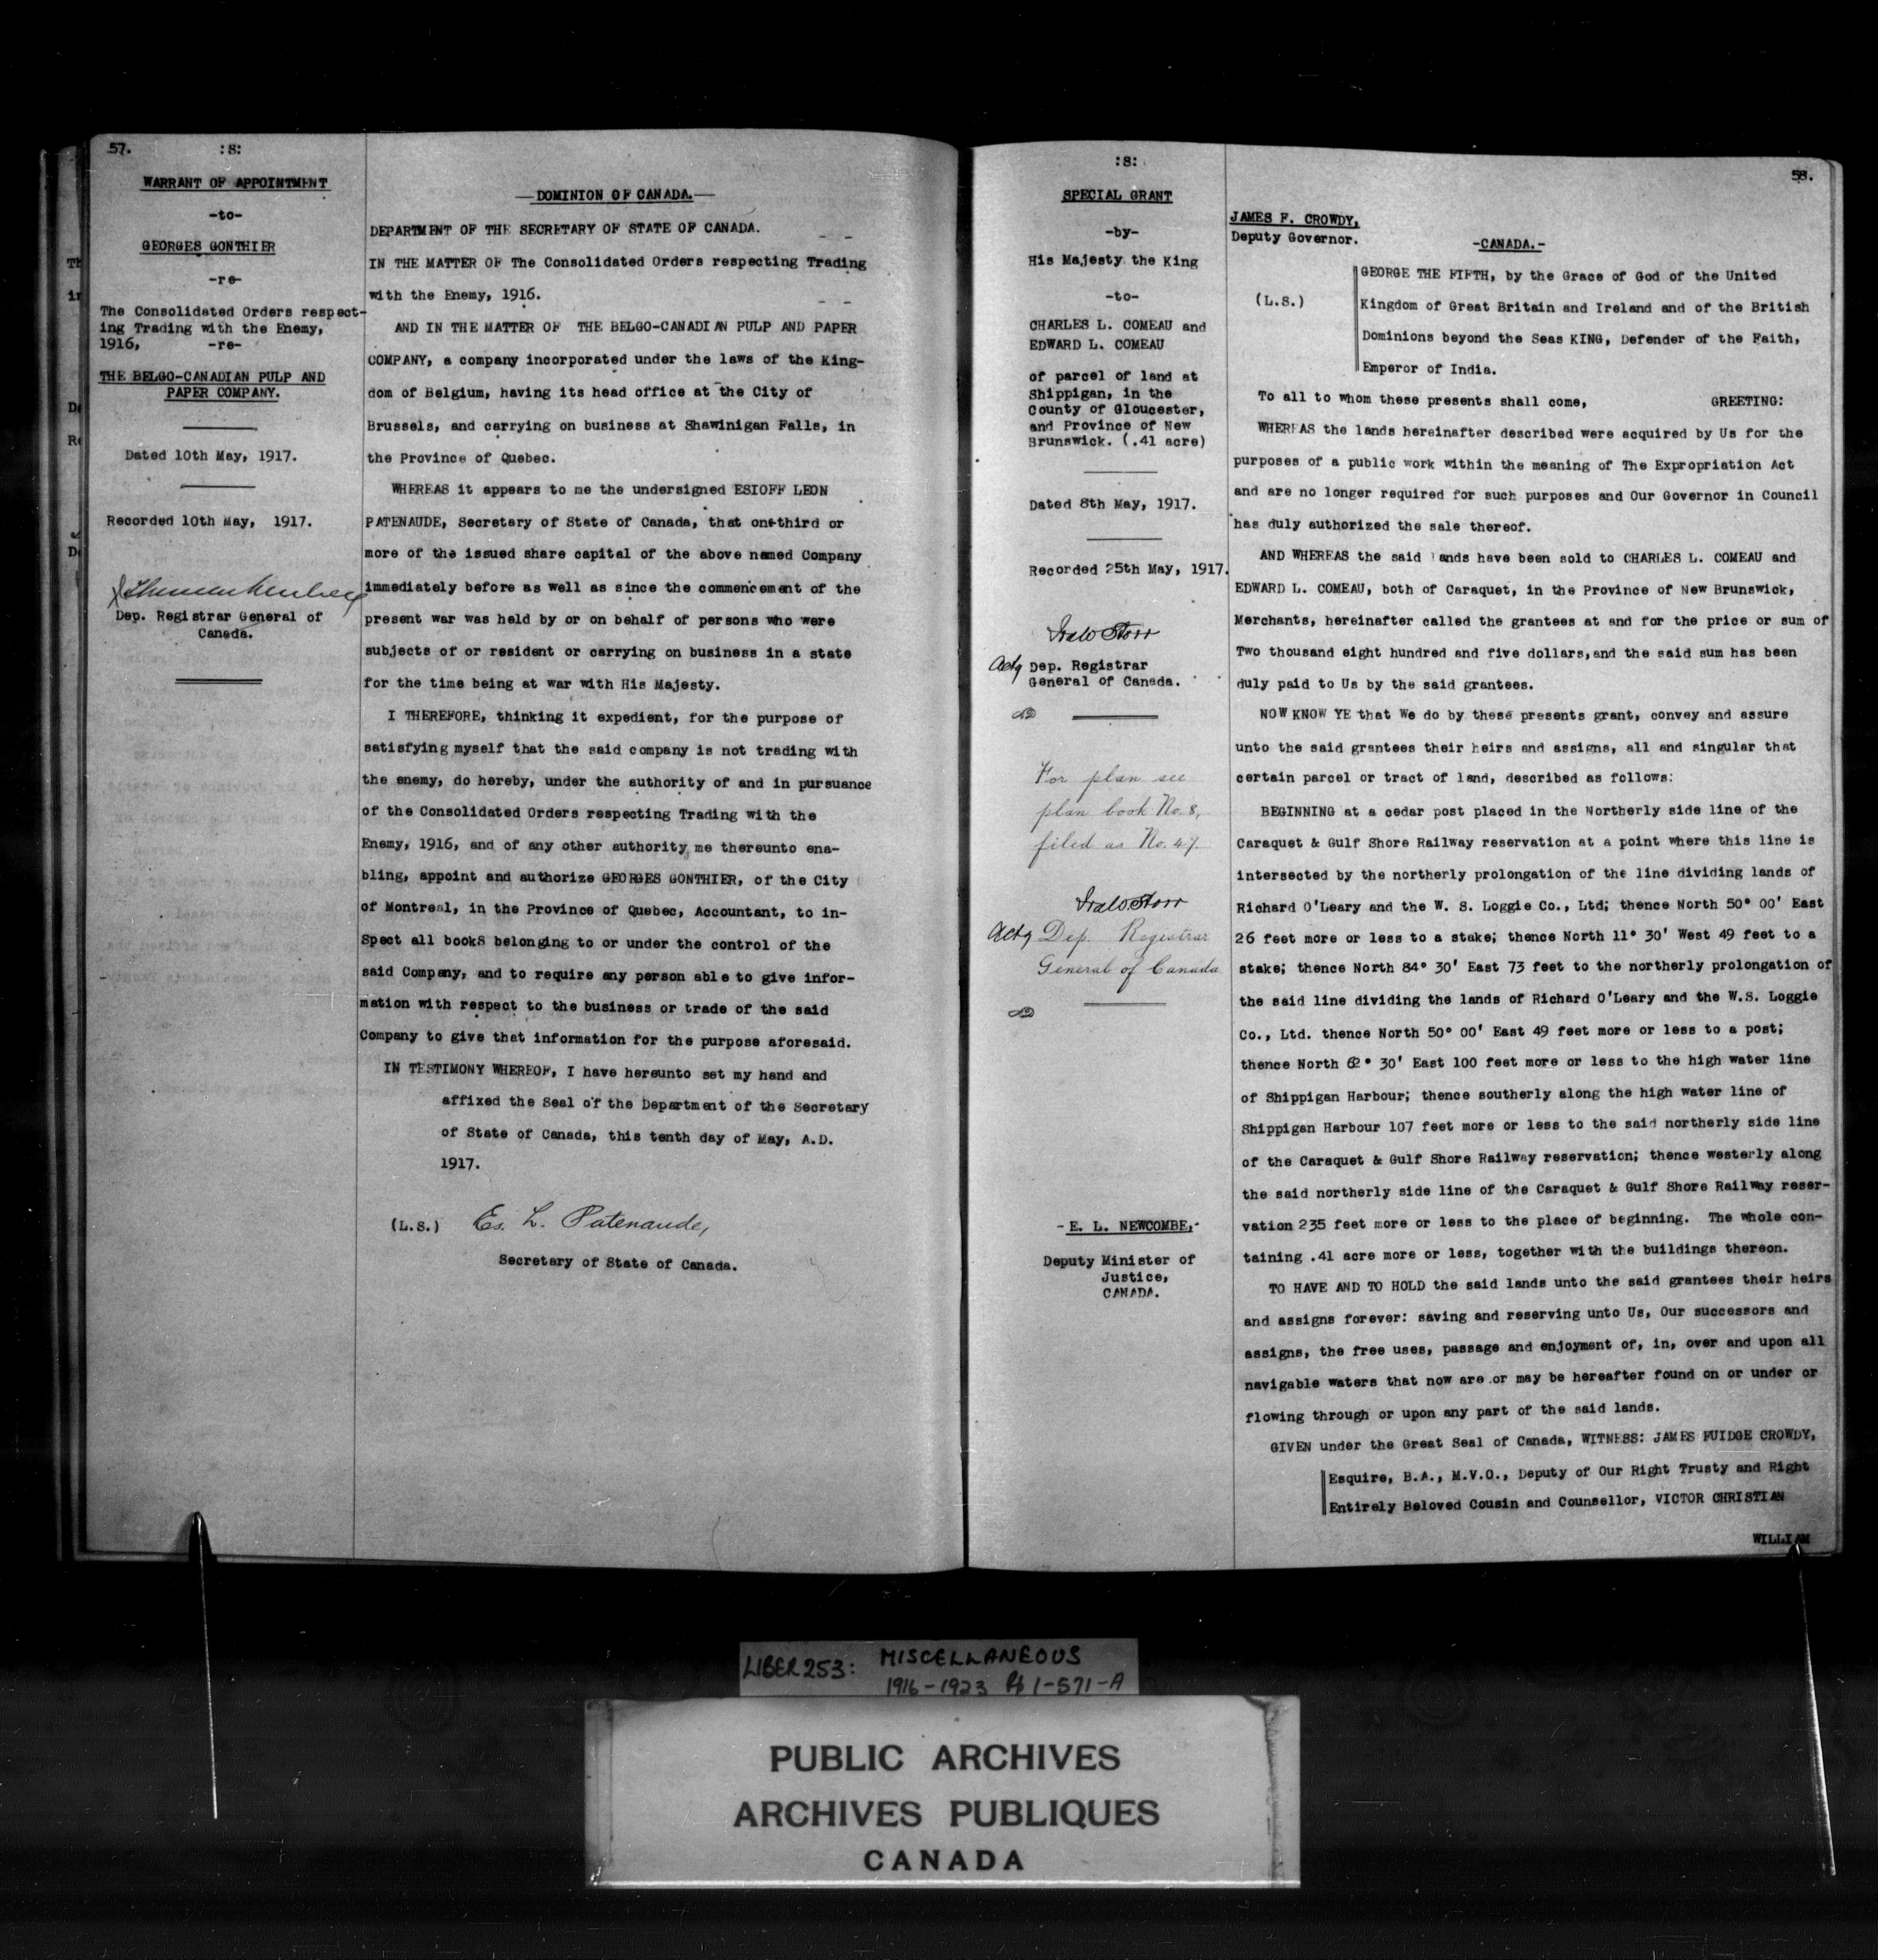 57.
:S:
WARRANT OF APPOINTMENT
-to-
GEORGES GONTHIER
-re-
The Consolidated Orders respect-
ing Trading with the Enemy,
1916, -re-
THE BELGO-CANADIAN PULP AND
PAPER COMPANY.
Dated 10th May, 1917.
Recorded 10th May, 1917.
Dep. Registrar General of
Canada.
DOMINION OF CANADA.
DEPARTMENT OF THE SECRETARY OF STATE OF CANADA.
IN THE MATTER OF The Consolidated Orders respecting Trading
with the Enemy, 1916.
AND IN THE MATTER OF THE BELGO-CANADIAN PULP AND PAPER
COMPANY, a company incorporated under the laws of the King-
dom of Belgium, having its head office at the City of
Brussels, and carrying on business at Shawinigan Falls, in
the Province of Quebec.
WHEREAS it appears to me the undersigned ESIOFF LEON
PATENAUDE, Secretary of State of Canada, that one-third or
more of the issued share capital of the above named Company
immediately before as well as since the commencement of the
present war was held by or on behalf of persons who were
subjects of or resident or carrying on business in a state
for the time being at war with His Majesty.
I THEREFORE, thinking it expedient, for the purpose of
satisfying myself that the said company is not trading with
the enemy, do hereby, under the authority of and in pursuance
of the Consolidated Orders respecting Trading with the
Enemy, 1916, and of any other authority me thereunto ena-
bling, appoint and authorize GEORGES GONTHIER, of the City
of Montreal, in the Province of Quebec, Accountant, to in-
Spect all bookS belonging to or under the control of the
said Company, and to require any person able to give infor-
mation with respect to the business or trade of the said
Company to give that information for the purpose aforesaid.
IN TESTIMONY WHEREOF, I have hereunto set my hand and
affixed the Seal of the Department of the Secretary
of State of Canada, this tenth day of May, A.D.
1917.
(L.S.) Es. L. Patenaude,
Secretary of State of Canada.
:S:
SPECIAL GRANT
-by-
His Majesty the King
-to-
CHARLES L. COMEAU and
EDWARD L. COMEAU
of parcel of land at
Shippigan, in the
County of Gloucester,
and Province of New
Brunswick. (.41 acre)
Dated 8th May, 1917.
Recorded 25th May, 1917.
Actg Dep. Registrar
General of Canada.
For plan see
plan book No. 8,
filed as No. 47.
Actg Dep. Registrar
General of Canada
- E. L. NEWCOMBE,-
Deputy Minister of
Justice,
CANADA.
58.
JAMES F. CROWDY,
Deputy Governor.
-CANADA.-
(L.S.)
GEORGE THE FIFTH, by the Grace of God of the United
Kingdom of Great Britain and Ireland and of the British
Dominions beyond the Seas KING, Defender of the Faith,
Emperor of India.
To all to whom these presents shall come, GREETING:
WHEREAS the lands hereinafter described were acquired by Us for the
purposes of a public work within the meaning of The Expropriation Act
and are no longer required for such purposes and Our Governor in Council
has duly authorized the sale thereof.
AND WHEREAS the said lands have been sold to CHARLES L. COMEAU and
EDWARD L. COMEAU, both of Caraquet, in the Province of New Brunswick,
Merchants, hereinafter called the grantees at and for the price or sum of
Two thousand eight hundred and five dollars,and the said sum has been
duly paid to Us by the said grantees.
NOW KNOW YE that We do by these presents grant, convey and assure
unto the said grantees their heirs and assigns, all and singular that
certain parcel or tract of land, described as follows:
BEGINNING at a cedar post placed in the Northerly side line of the
Caraquet & Gulf Shore Railway reservation at a point where this line is
intersected by the northerly prolongation of the line dividing lands of
Richard O'Leary and the W. S. Loggie Co., Ltd; thence North 50° 00' East
26 feet more or less to a stake; thence North 11° 30' West 49 feet to a
stake; thence North 84° 30' East 73 feet to the northerly prolongation of
the said line dividing the lands of Richard O'Leary and the W.S. Loggie
Co., Ltd. thence North 50° 00' East 49 feet more or less to a post;
thence North 62° 30' East 100 feet more or less to the high water line
of Shippigan Harbour; thence southerly along the high water line of
Shippigan Harbour 107 feet more or less to the said northerly side line
of the Caraquet & Gulf Shore Railway reservation; thence westerly along
the said northerly side line of the Caraquet & Gulf Shore Railway reser-
vation 235 feet more or less to the place of beginning. The whole con-
taining .41 acre more or less, together with the buildings thereon.
TO HAVE AND TO HOLD the said lands unto the said grantees their heirs
and assigns forever: saving and reserving unto Us, Our successors and
assigns, the free uses, passage and enjoyment of, in, over and upon all
navigable waters that now are or may be hereafter found on or under or
flowing through or upon any part of the said lands.
GIVEN under the Great Seal of Canada, WITNESS: JAMES FUIDGE CROWDY,
Esquire, B.A., M.V.O., Deputy of Our Right Trusty and Right
Entirely Beloved Cousin and Counsellor, VICTOR CHRISTIAN
WILLIAM
LIBER 253: MISCELLANEOUS
1916-1923 Pt 1-571-A
PUBLIC ARCHIVES
ARCHIVES PUBLIQUES
CANADA